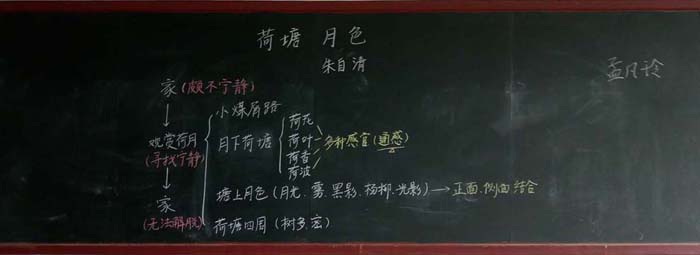 荷塘 月色
朱自清
孟凡玲
家(颇不宁静)
↓
观赏荷月
(寻找宁静)
↓
家
(无法解脱)
小煤屑路
月下荷塘
荷花
荷叶
荷香
荷波
多种感官(通感)
塘上月色(月光、雾、黑影、杨柳、光影)→正面、侧面结合
荷塘四周(树多、密)